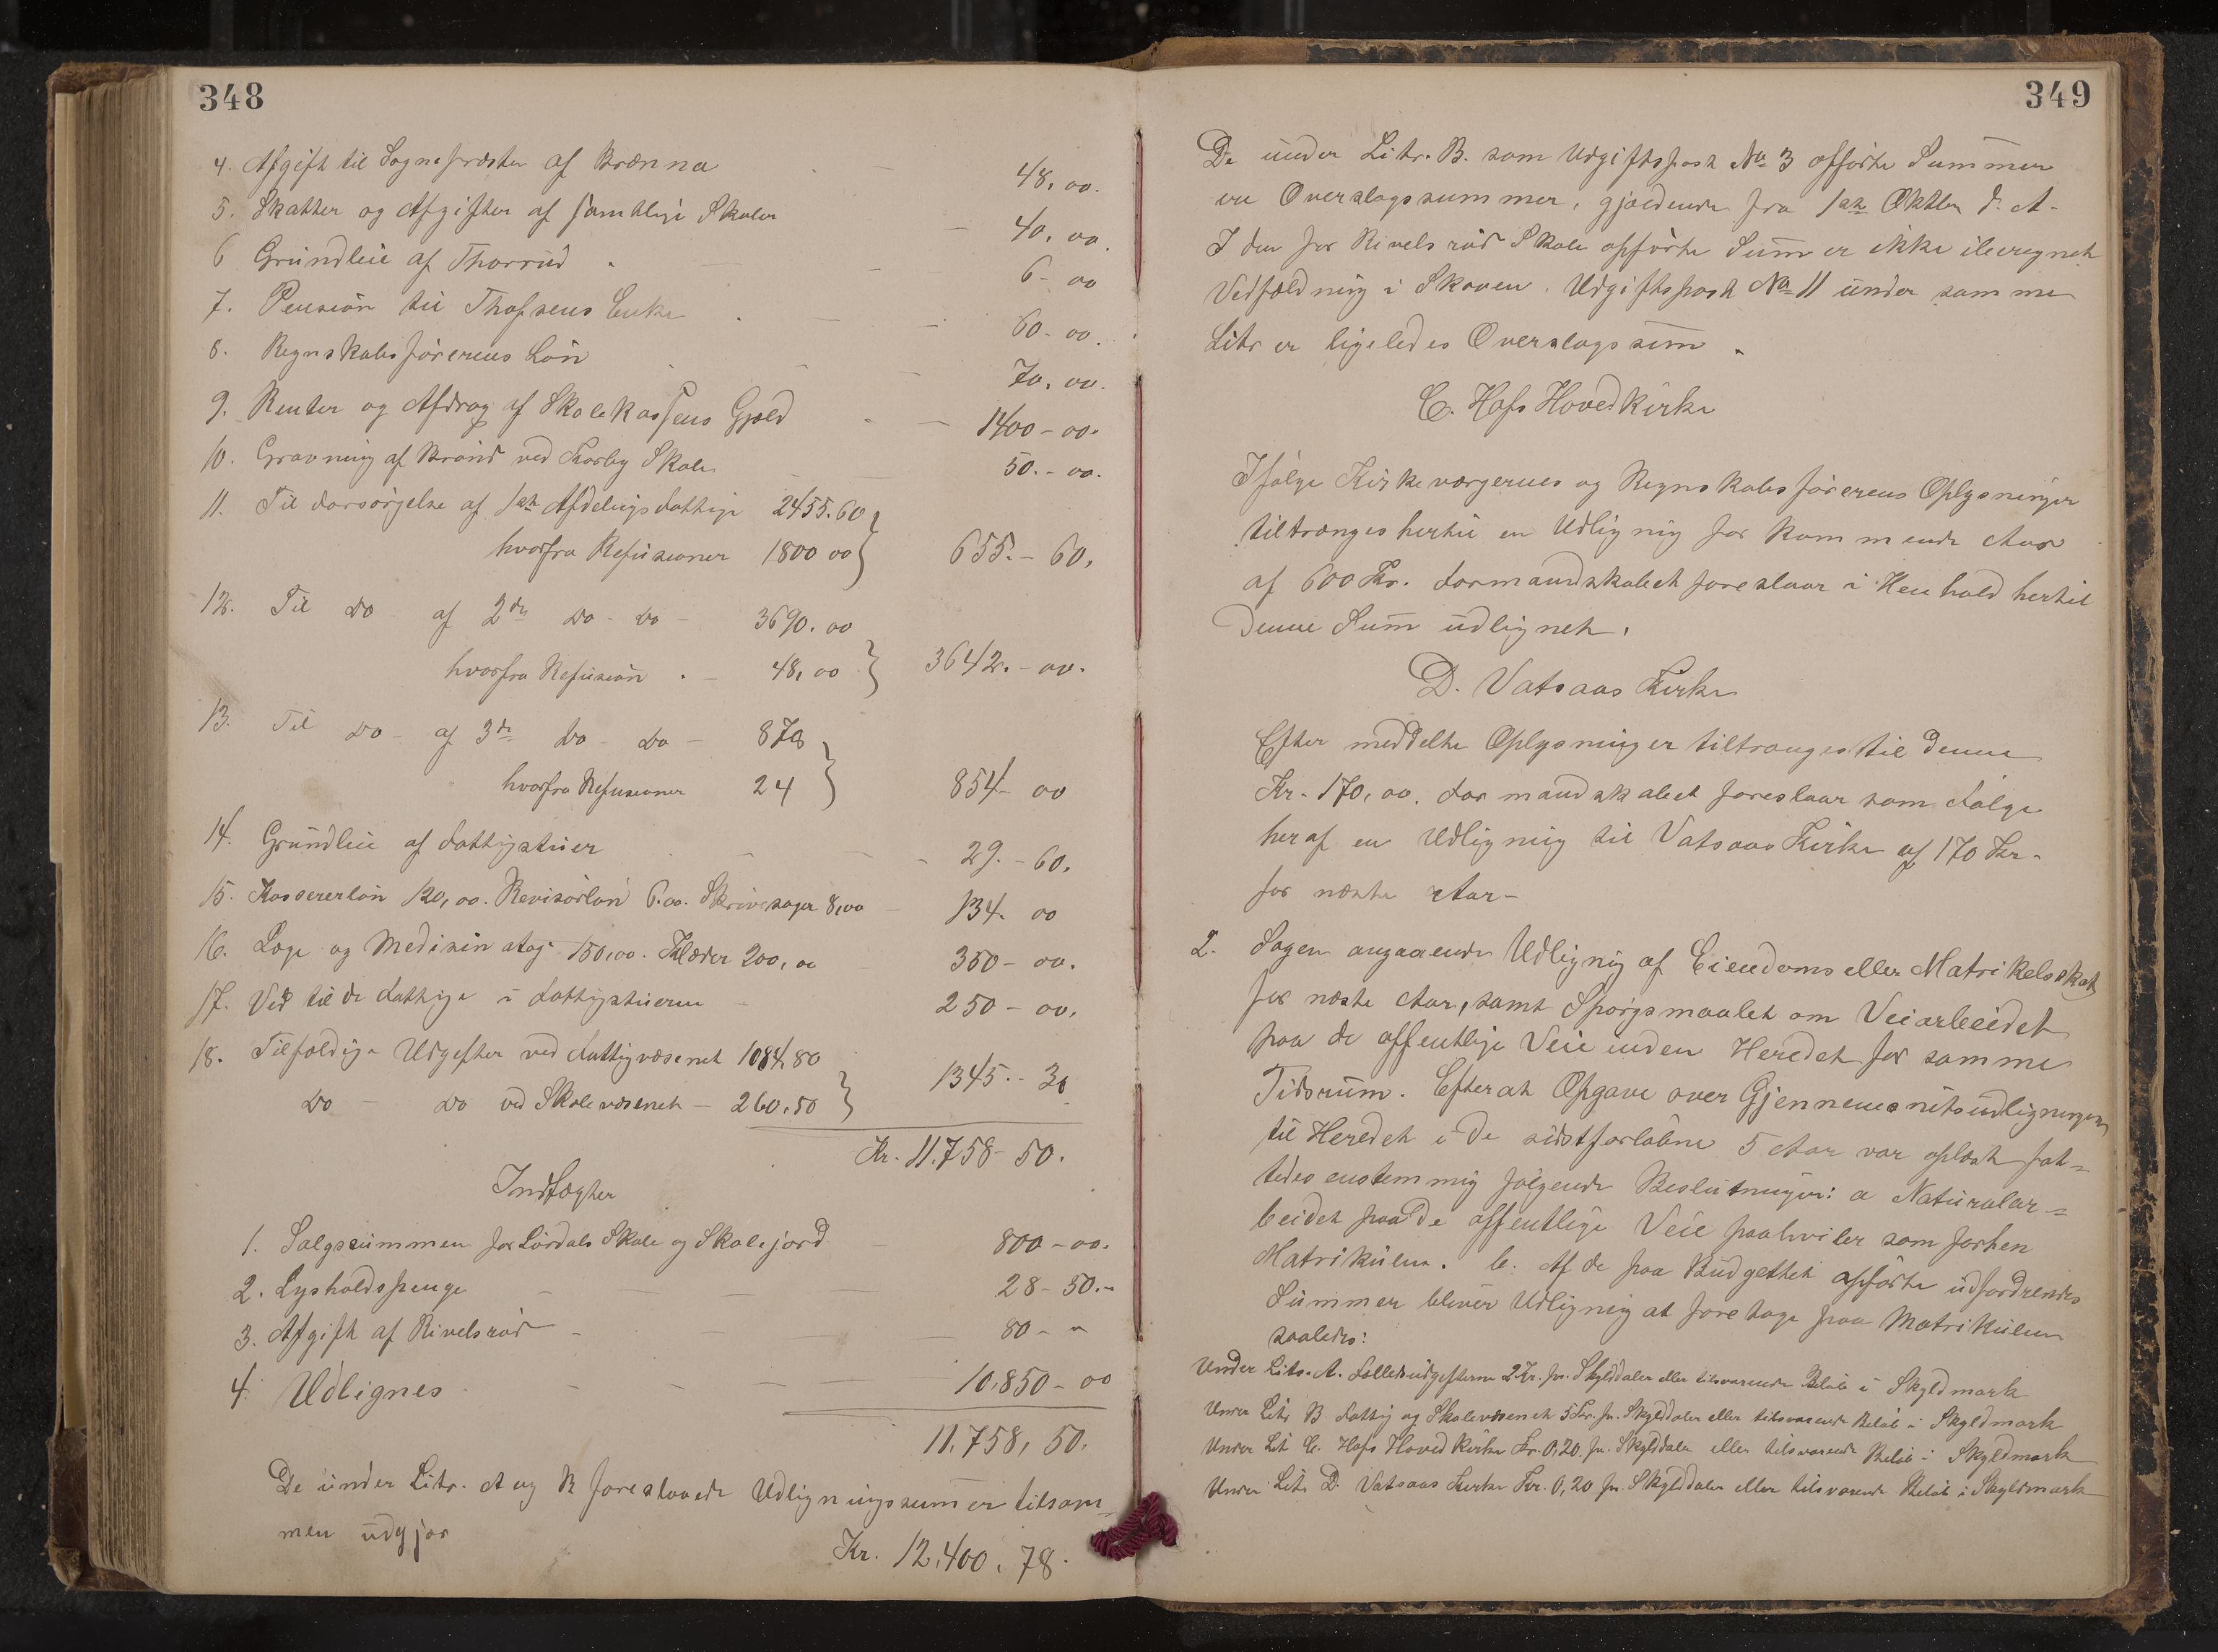 348
4. Afgift til Sognepræsten af Brænna - 48,00.
5. Skatter og Afgifter af samtlige Skoler - 40,00.
6 Grundleie af Thorrud - 6-00
7. Pension til Thofsens Enke - 60-00.
8. Regnskabsførerens Løn - 70,00.
9. Renter og Afdrag af Skolekassens Gjæld - 1400-00.
10. Gravning af Brønd ved Korby Skole 50.-00.
11. Til Forsørgelse af 1ste Afdelings Fattige 2455.60
hvorfra Refusioner 1800 00 } 655.-60.
12. Til Do af 2den Do - Do - 3690.00
hvorfra Refusion . - 48,00 } 3642.-00.
13. Til Do - af 3die Do - Do - 878
hvorfra Refusioner 24 } 854-00
14. Grundleie af Fattigstuer - 29.-60.
15. Kassererløn 120,00. Revisorløn 6.00. Skrivesager 8,00 - 134. 00
16. Læge og Medisin 150,00. Klæder 200,00 350-00.
17. Ved til de Fattige i Fattigstuerne - 250-00.
18. Tilfældige Udgifter ved Fattigvæsenet 1084,80
Do - Do ved Skolevæsenet - 260.50 } 1345.-30
Kr. 11.758-50.
Indtægter
1. Salgssummen for Lørdals Skole og Skolejord - 800-00.
2. Lysholdspenge - 28-50.-
3. Afgift af Rivelsrød - 80- "
4. Udlignes - 10.850-00
11.758,50.
De under Litr. A og B foreslaaede Udligningssummer tilsam=
men udgjør
Kr. 12,400,78.
349
De under Litr. B. som Udgiftspost No 3 opførte Summer
ere Overslagssummer, gjældende fra 1ste Oktbr d. A-
I den for Rivelsrød Skole opførte Sum er ikke iberegnet
Vedfældning i Skoven. Udgiftspost No 11 under samme
Litr er ligeledes Overslagssum.
C. Hofs Hovedkirke
Ifølge Kirkeværgernes og Regnskabsførerens Oplysninger
tiltrænges hertil en Udligning for kommende Aar
af 600 Kr. Formandskabet foreslaar i Henhold hertil
denne Sum udlignet.
D. Vatsaas Kirke
Efter meddelte Oplysninger tiltrænges til denne
Kr. 170,00. Formandskabet foreslaar som Følge
heraf en Udligning til Vatsaas Kirke af 170 Kr.
for næste Aar-
2. Sagen angaaende Udligning af Eiendoms eller Matrikelsskat
for næste Aar, samt Spørgsmaalet om Veiarbeidet
paa de offentlige Veie inden Heredet for samme
Tidsrum. Efterat Opgave over Gjennemsnitsudligningen
til Heredet i de sidstforløbne 5 Aar var oplæst fat=
tedes enstemmig følgende Beslutninger: a Naturalar=
beidet paa de offentlige Veie paahviler som forhen
Matrikulen. b. Af de paa Budgettet opførte udfordrendes
Summer bliver Udligning at foretage paa Matrikulen
saaledes:
Under Litr. A. Fællesudgifterne 2 Kr. pr. Skylddaler eller tilsvarende Beløb i Skyldmark
Under Litr B Fattig og Skolevæsenet 5 Kr. pr. Skylddaler eller tilsvarende Beløb i Skyldmark
Under Lit C. Hofs Hovedkirke Kr. 0,20 pr. Skylddaler eller tilsvarende Beløb i Skyldmark
Under Litr D. Vatsaas Kirke Kr. 0,20 pr. Skylddaler eller tilsvarende Beløb i Skyldmark